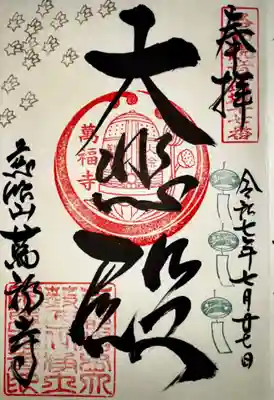 奉拝
大悲殿
令和七年七月廿七日
萬福寺
慈眼山 萬福寺